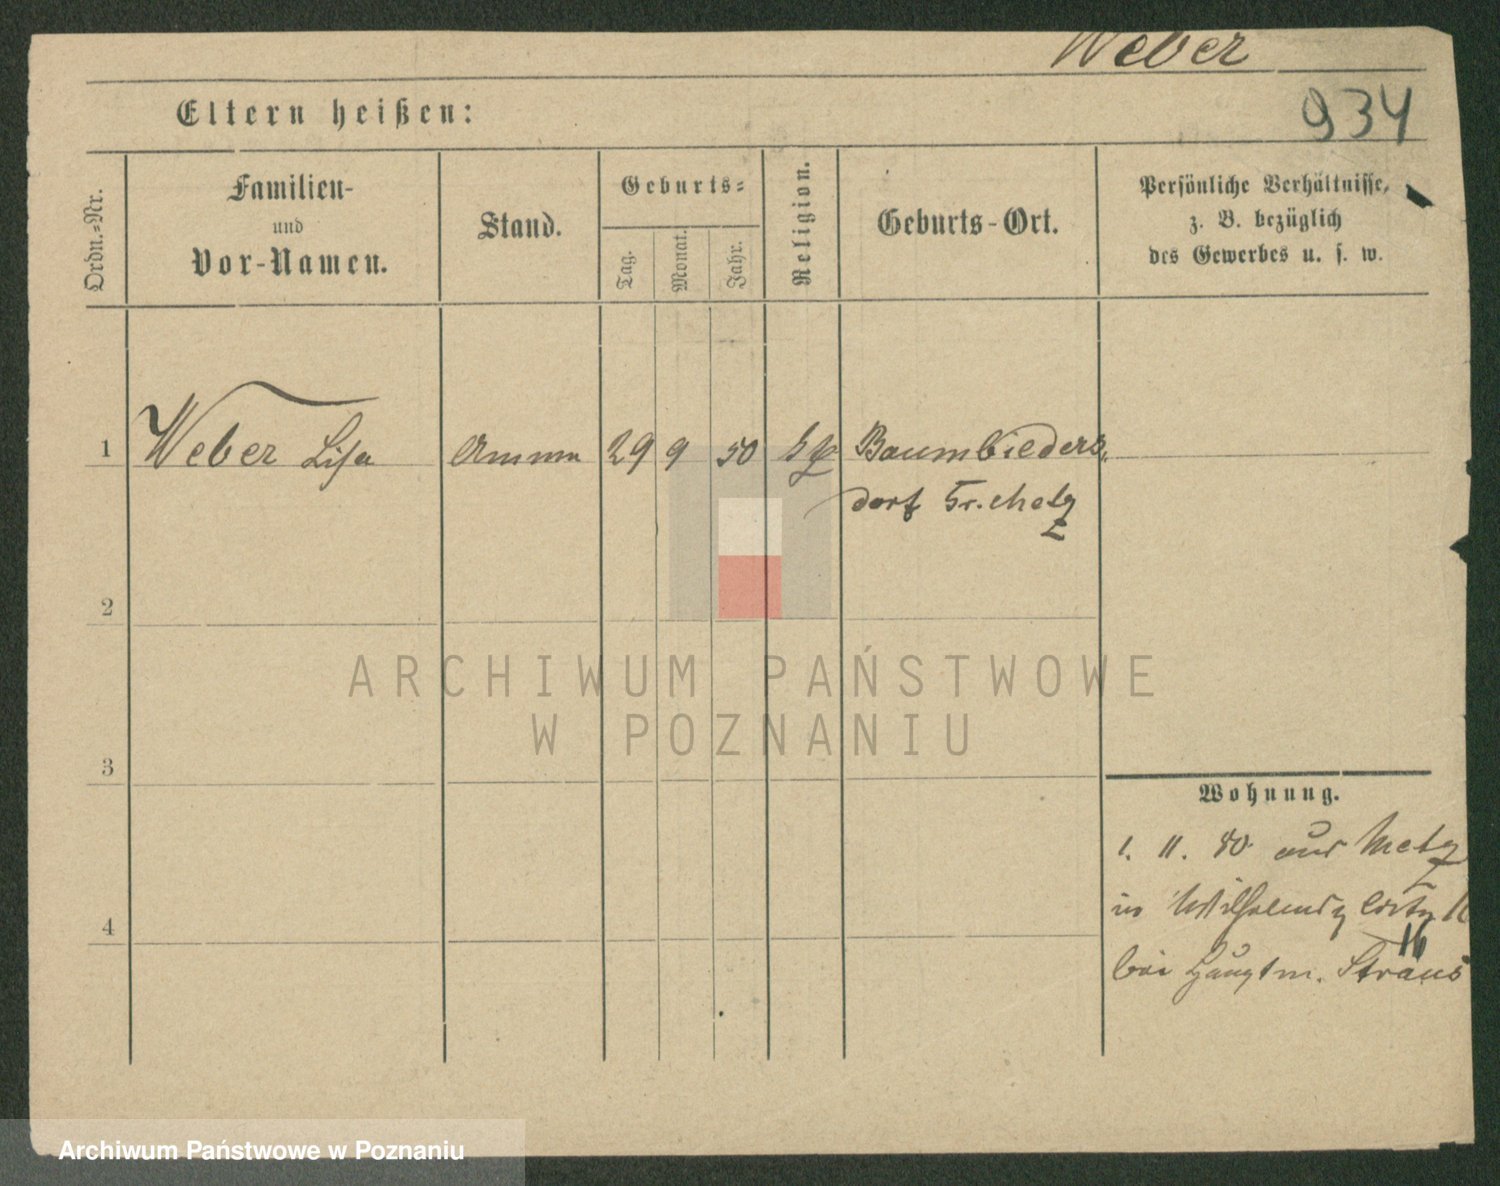 Weber
934
Eltern heißen:
Ordn.-Nr.
Familien-
und
Vor-Namen.
Stand.
Geburts-
Tag.
Monat.
Jahr.
Religion.
Geburts-Ort.
Persönliche Verhältnisse,
z. B. bezüglich
des Gewerbes u. s. w.
1 Weber Lisa Amme 29 9 50 Baumbieders
dorf Kr. Metz
2
3
4
Wohnung.
1. 11. 80 aus Metz
in Wilhelmsplatz 16
16
bei Hauptm. Straus
ARCHIWUM PAŃSTWOWE
W POZNANIU
Archiwum Państwowe w Poznaniu